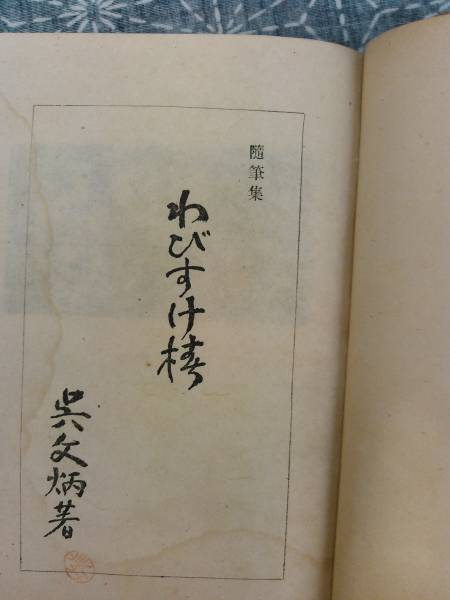 隨筆集
わびすけ椿
呉文炳著